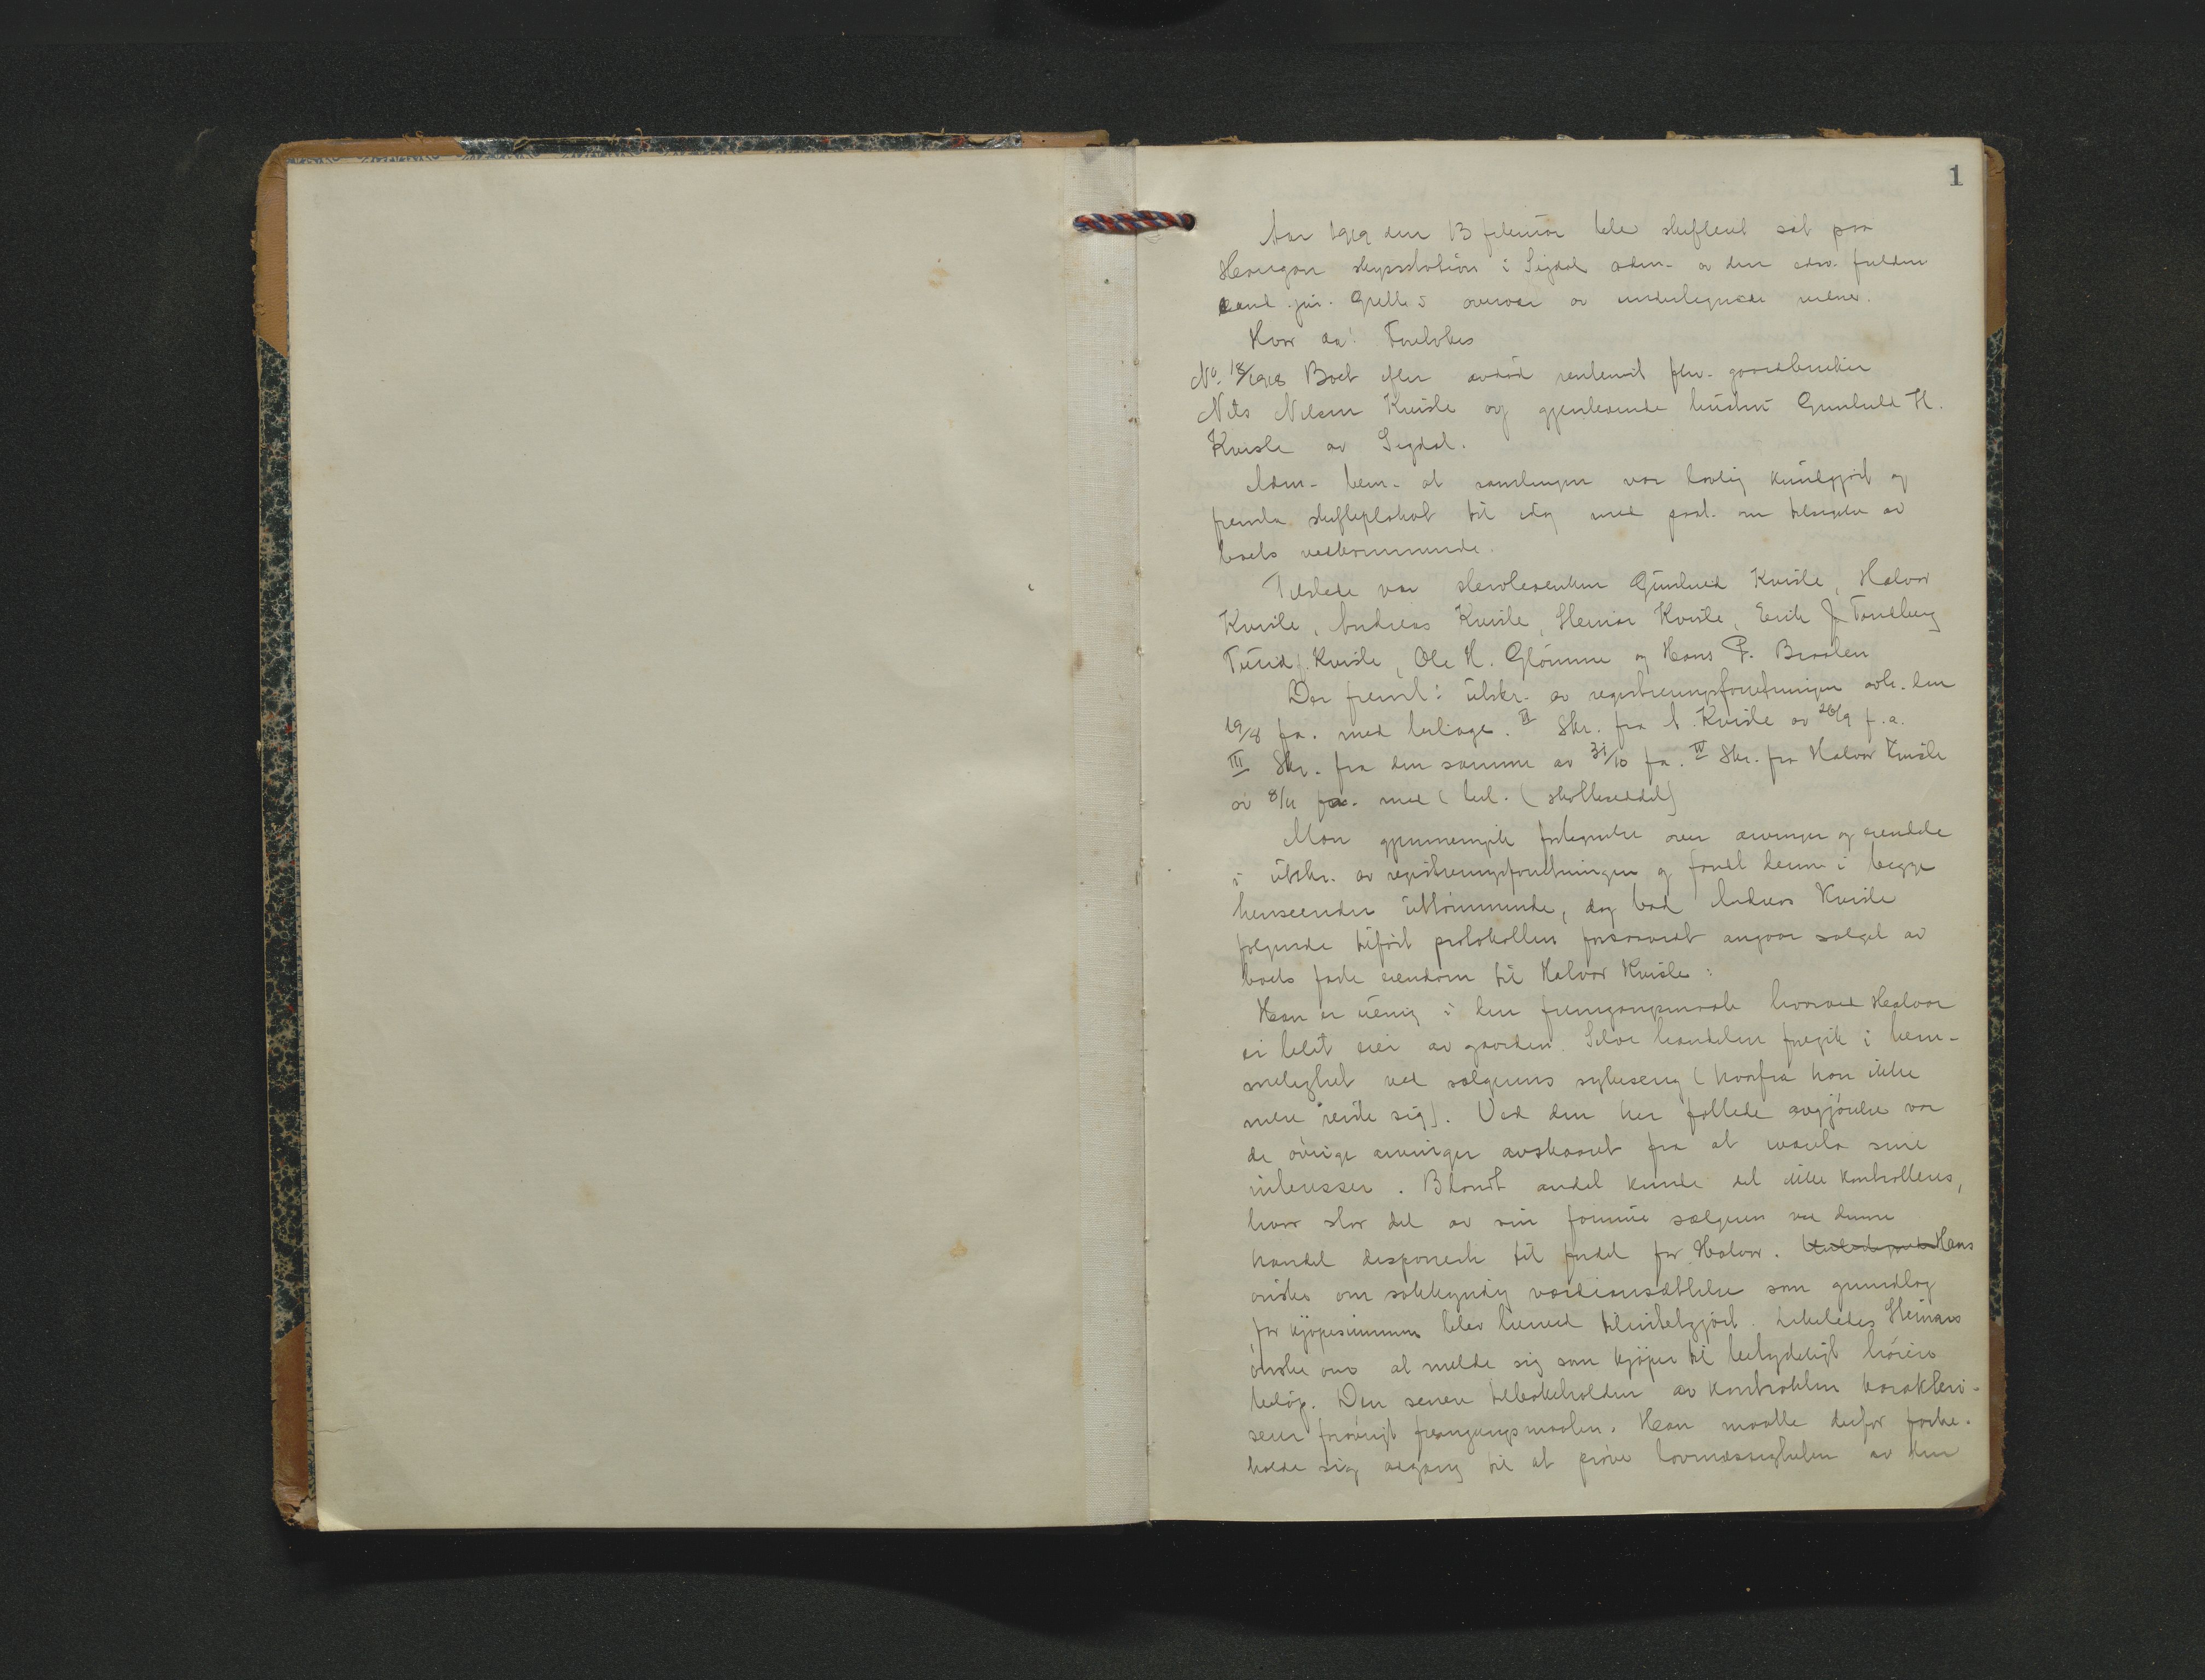 1
Aar 1919 den 13 februar blev skifteret sat paa
Haugan skysstation i Sigdal adm. av den edsv. fuldm
cand. jur. Grelle i overvær av undertegnede vidner.
Hvor da: Foretokes
No. 18/1918 Boet efter avdød rentenist fhv. gaardbruker
Nils Nilsen Kvisle og gjenlevende hustru Gunhild H.
Kvisle av Sigdal.
Adm. bem. at samlingen var lovlig kundgjort og
fremla skifteplakat til idag med paat. om tilsigelse av
boets vedkommende.
Tilstede var stervboenken Gunhild Kvisle, Halvor
Kvisle, Andreas Kvisle, Steinar Kvisle, Erik J. Tandberg
Turid J. Kvisle, Ole H. Glömme og Hans P. Braaten
Der freml: I utskr. av registreringsforretningen avh. den
19/8 f.a. med bilage. II Skr. fra A. Kvisle av 26/9 f.a.
III Skr. fra den samme av 31/10 f.a. IV Skr. fra Halvor Kvisle
av 8/11 f.a. med 1 bil. (skatteseddel)
Man gjennemgik fortegnelse over arvinger og eiendele
i utskr. av registreringsforretningen og fandt denne i begge
henseender uttömmende, dog bad Andreas Kvisle
følgende tilført protokollen forsaavidt angaar salget av
boets faste eiendom til Halvor Kvisle:
Han er uenig i den fremgangsmaate hvorved Halvor
er blit eier av gaarden. Selve handelen foregik i hem-
melighet ved sælgerens sykeseng (hvorfra han ikke
mere reiste sig). Ved den her fattede avgjörelse var
de övrige arvinger avskaaret fra at ivareta sine
interesser. Blandt andet kunde det ikke kontrolleres,
hvor stor del av sin formue sælgeren ved denne
handel disponerte til fordel for Halvor. Hans
önske om sakkyndig værdiansættelse som grundlag
for kjöpesummen blev herved tilintetgjort. Likeledes Steinars
önske om at melde sig som kjöper til betydeligt höiere
belöp. Den senere tilbakeholden av kontrakten karakteri-
serer forövrigt fremgangsmaaten. Han maatte derfor forbe-
holde sig adgang til at pröve lovmæssigheten av den